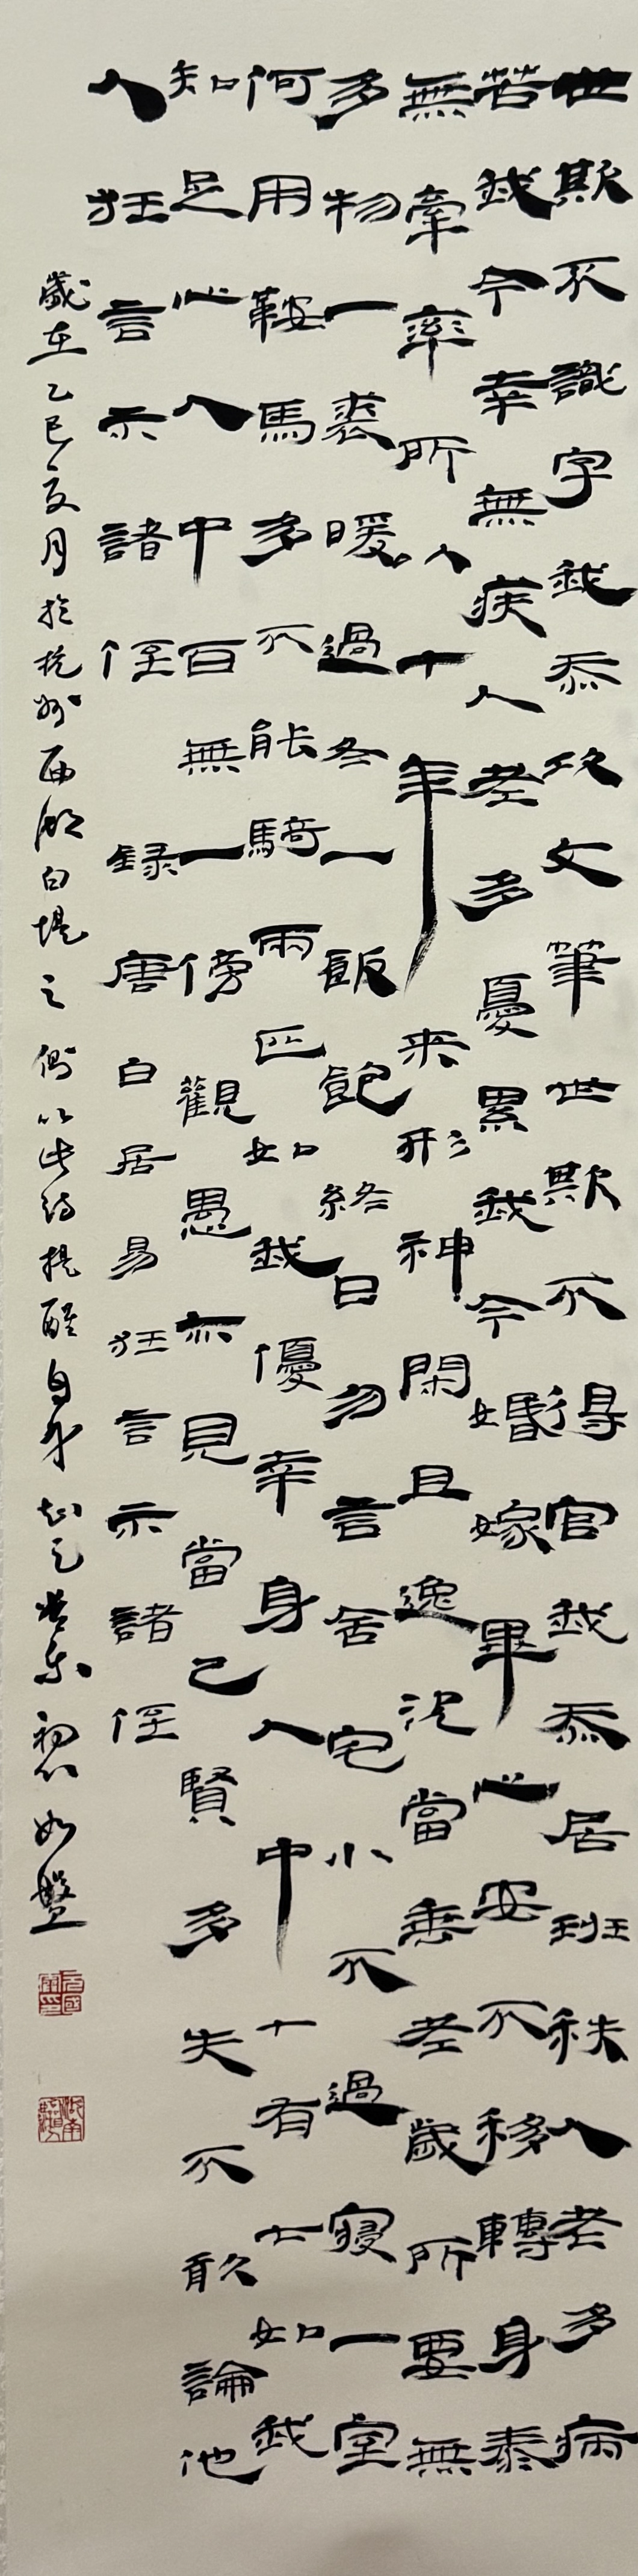 世欺不識字我忝攻文筆世欺不得官我忝居班秩人老多病
苦我今幸無疾人老多憂累我今婚嫁畢心安不移轉身泰
無牽率所以十年来形神閑且逸況當垂老歲所要無
多物一裘暖過冬一飯飽終日勿言舍宅小不過寢一室
何用鞍馬多不能騎兩匹如我優幸身人中十有七如我
知足心人中百無一傍觀愚亦見當己賢多失不敢論池
人狂言示諸侄 録唐白居易狂言示諸侄
歲在乙巳夏月於杭州西湖白堤之側以此詩提醒自身知足常樂初心如磐